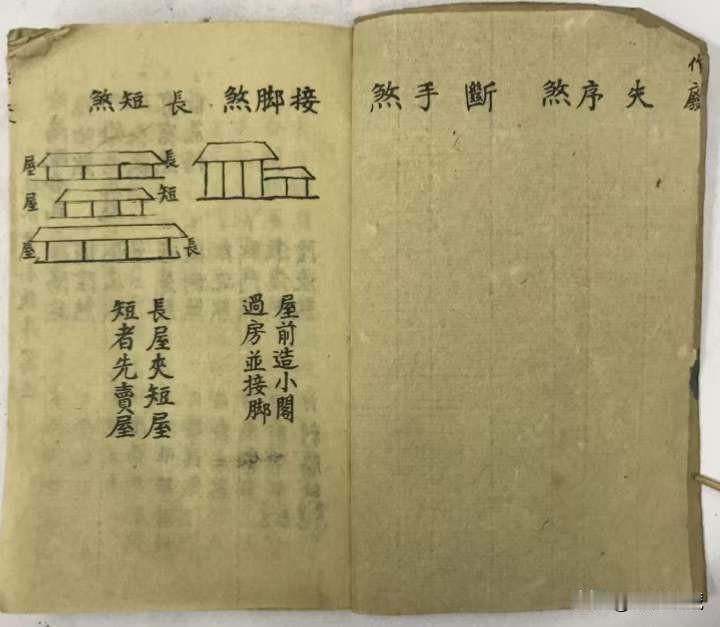 夾序煞
斷手煞
接脚煞
屋前造小閣
過房並接脚
長短煞
長屋
短屋
長屋
長屋夾短屋
短者先賣屋